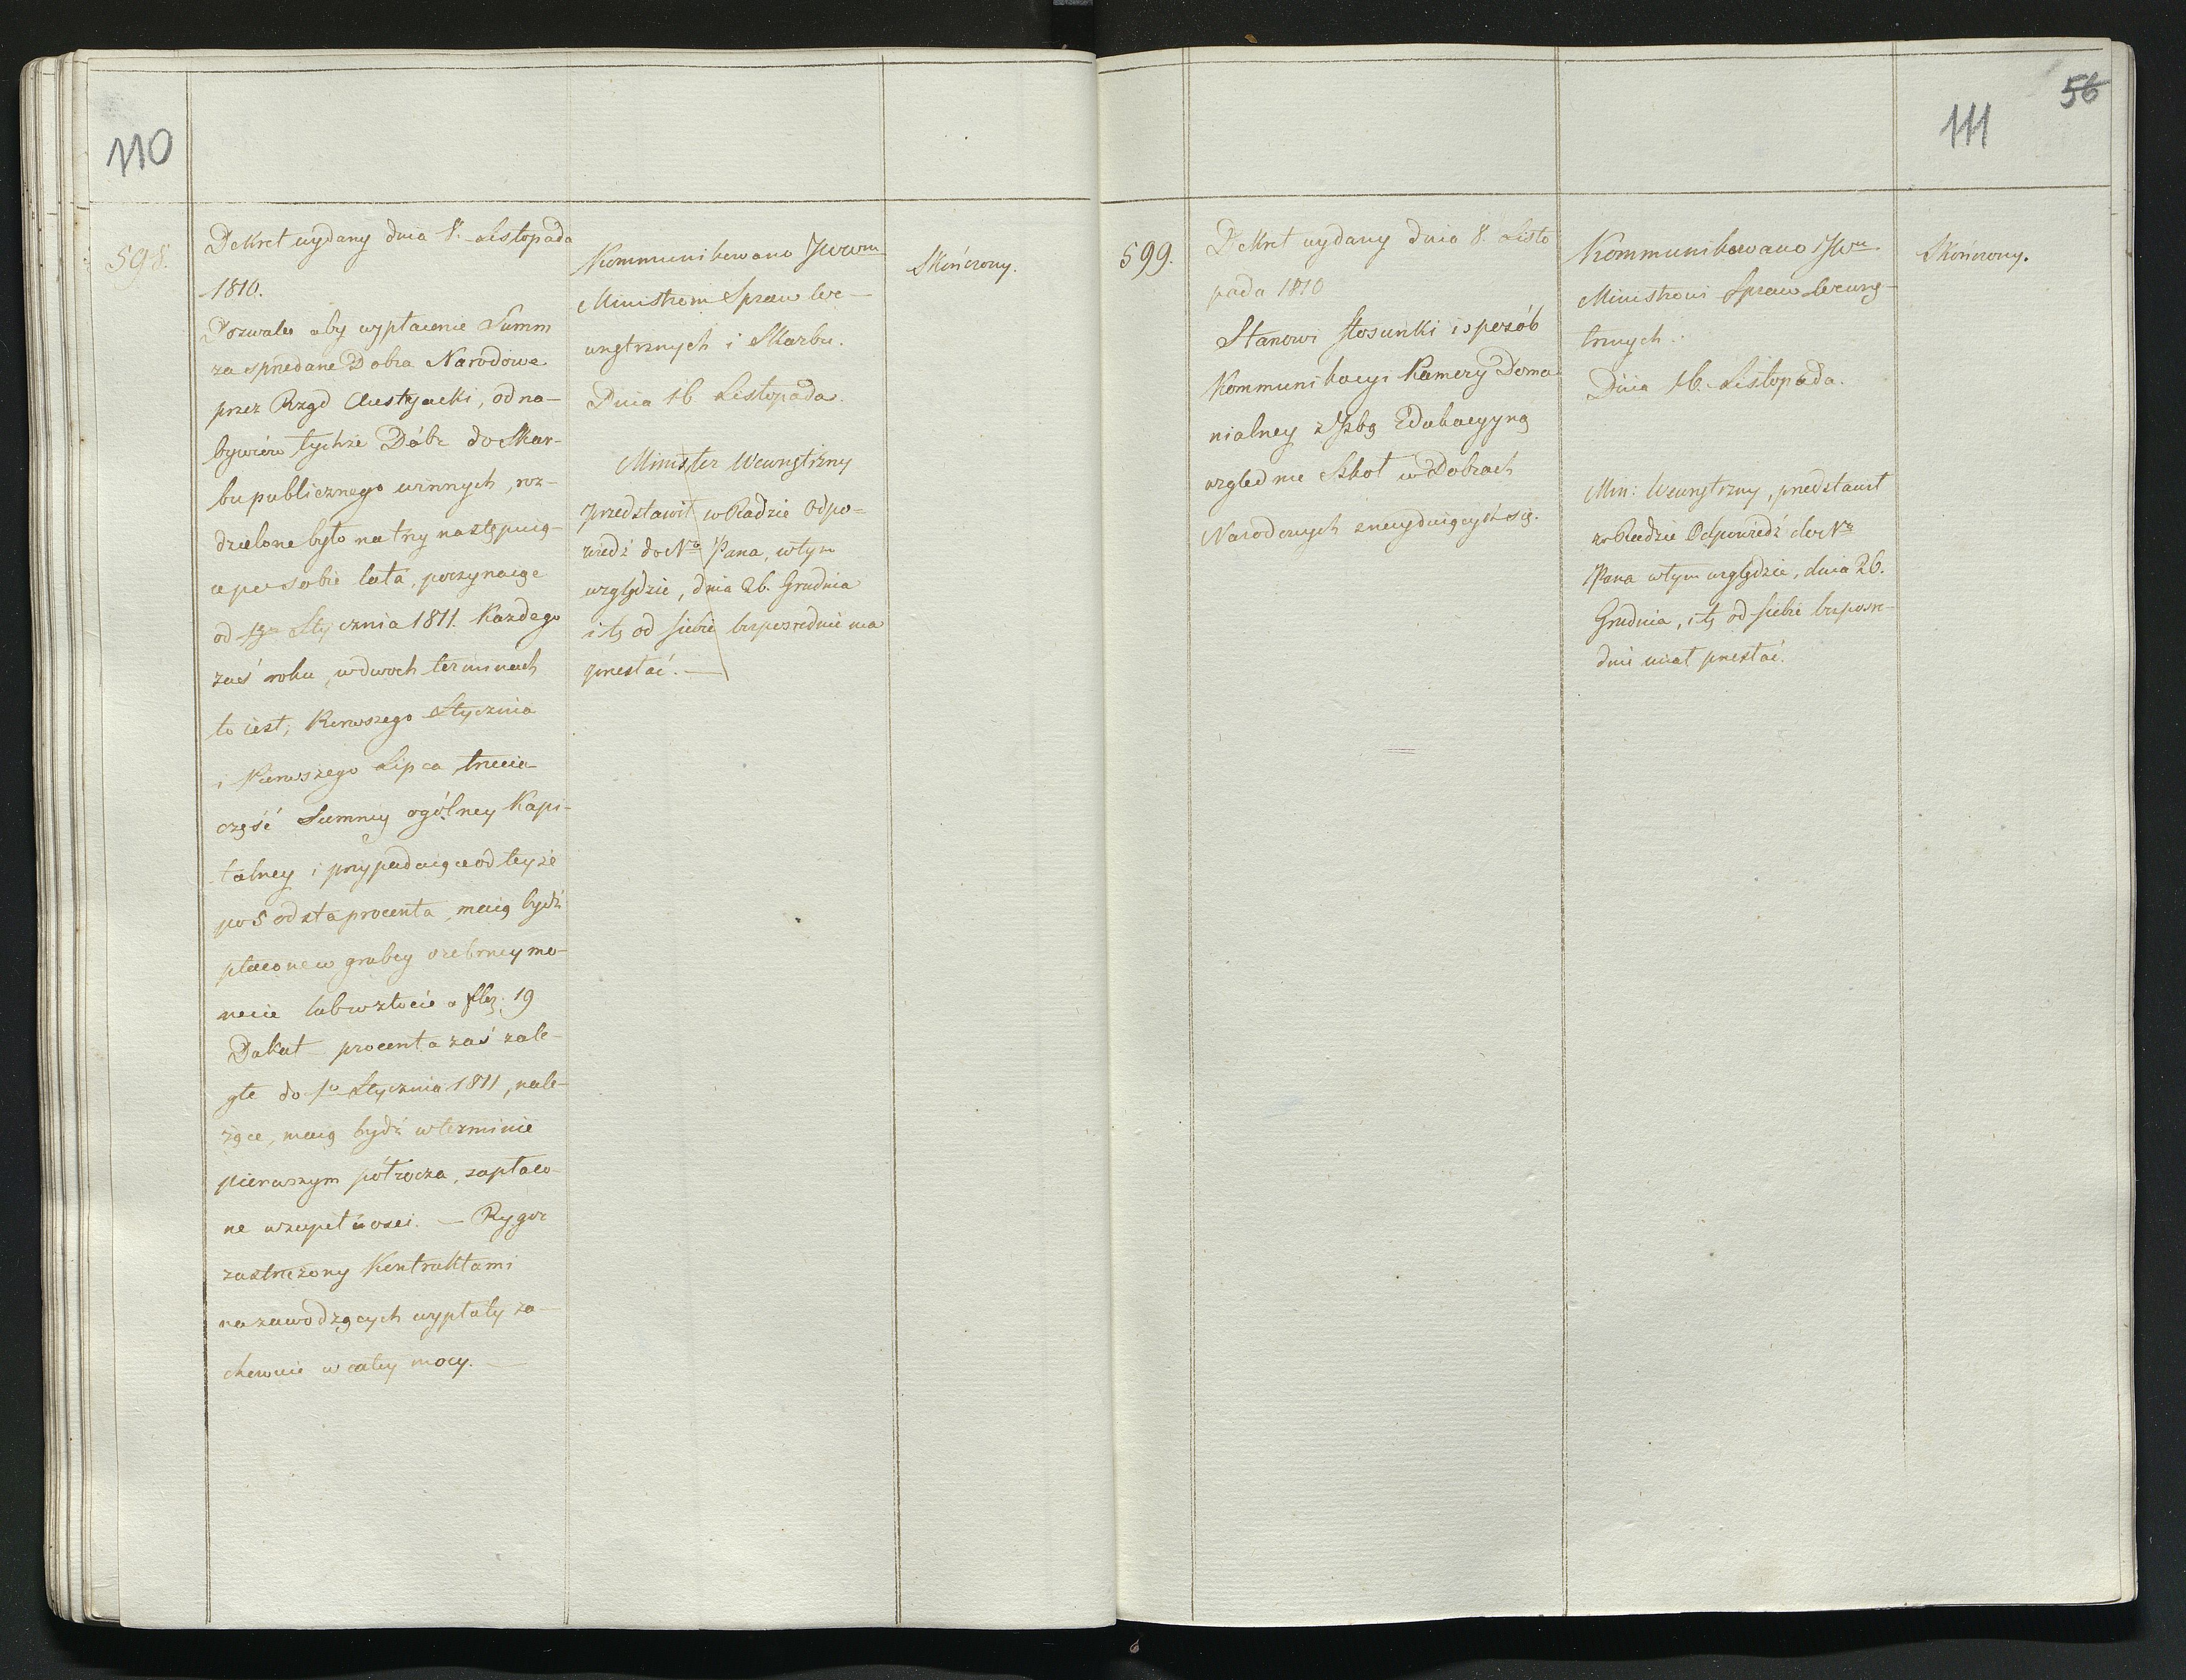 110
598.
Dekret wydany dnia 8. Listopada
1810.
Dozwala aby wypłacenie Summ
za sprzedane Dobra Narodowe
przez Rząd Austryacki, od na-
bywców tychże Dóbr do Skar-
bu publicznego winnych, roz-
dzielone było na trzy następuią-
ce po sobie lata, poczynaiąc
od 1go Stycznia 1811. Każdego
zaś roku, w dwóch terminach
to iest; Pierwszego Stycznia
i Pierwszego Lipca, trzecia
część Summy ogólney Kapi-
talney i przypadaiące od teyże
po 5 od sta procenta, maią bydź
płacone w grubey srebrney mo-
necie lub w złocie a flz. 19
Dukat procenta zaś zale-
głe do 1o Stycznia 1811, nale-
żące, maią bydź w terminie
pierwszym półrocza, zapłaco-
ne w zupełności. — Rygor
zastrzeżony Kontraktami
na zawodzących wypłaty za-
chowuie w całey mocy. —
Kommunikowano JWWm
Ministrom Spraw We-
wnętrznych i Skarbu.
Dnia 16. Listopada.
Minister Wewnętrzny
przedstawił w Radzie Odpo=
wiedź do No Pana, w tym
względzie, dnia 26. Grudnia
i tę od siebie bezpośrednie ma
przesłać. —
Skończony.
56
111
599.
Dekret wydany dnia 8. Listo
pada 1810
Stanowi stosunki i sposób
Kommunikacyi Kamery Doma
nialney z Izbą Edukacyyną
względnie Szkół w Dobrach
Narodowych znayduiących się.
Kommunikowano JWu
Ministrowi Spraw Wewnę-
trznych.
Dnia 16. Listopada.
Min: Wewnętrzny, przedstawił
w Radzie Odpowiedź do No
Pana w tym względzie, dnia 26.
Grudnia, i tę od siebie bezpośre-
dnie miał przesłać.
Skończony.